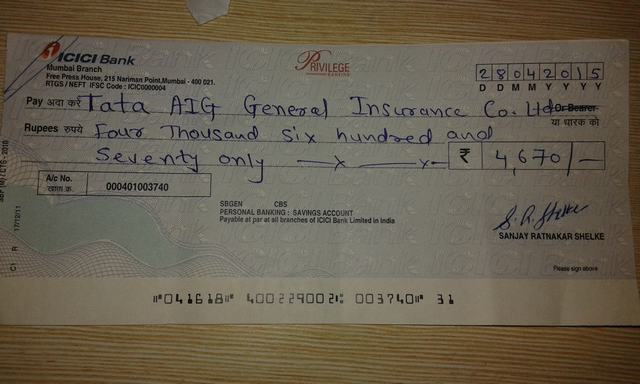 ICICI Bank
PRIVILEGE
BANKING
Mumbai Branch
Free Press House, 215 Nariman Point, Mumbai - 400 021.
RTGS / NEFT IFSC Code : ICIC0000004
28042015
D D M M Y Y Y Y
Pay अदा करें Tata AIG General Insurance Co. Ltd Or Bearer
या धारक को
Rupees रुपये Four Thousand Six hundred and
Seventy only —x———x— ₹ 4,670/—
A/c No.
खाता क्र. 000401003740
SBGEN CBS
PERSONAL BANKING : SAVINGS ACCOUNT
Payable at par at all branches of ICICI Bank Limited in India
S. R. Shelke
SANJAY RATNAKAR SHELKE
Please sign above
⑈041618⑈ 400229002⑆ 003740⑈ 31